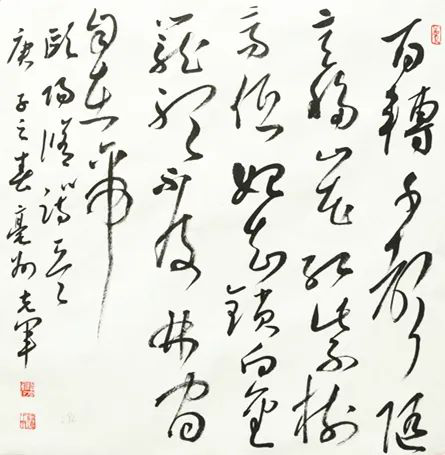 百轉千聲隨
意移山花紅紫樹
高低始知鎖向金
籠聽不及林間
自在啼
歐陽修詩
庚子之春亳州老軍